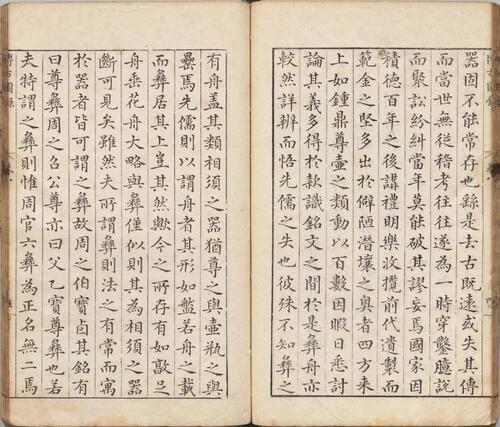 器固不能常存也繇是去古既遠或失其傳
而當世無從稽考往往遂為一時穿鑿臆說
而聚訟紛糾當年莫能破其謬妄焉國家因
積德百年之後講禮明樂收攬前代遺製而
範金之堅多出於僻陋潛壤之奧者四方來
上如鍾鼎尊壺之類動以百數因暇日悉討
論其義多得於款識銘文之間於是彝舟亦
較然詳辨而悟先儒之失也彼殊不知彝之
有舟蓋其類相須之器猶尊之與壺瓶之與
罍焉先儒則以謂舟者其形如盤若舟之載
而彝居其上豈其然歟今之所存有如敦足
舟垂花舟大略與彝僅似則其為相須之器
斷可見矣雖然夫所謂彝則法之有常而寓
於器者皆可謂之彝故周之伯寶卣其銘有
曰尊彝周之召公尊亦曰父乙寶尊彝也若
夫特謂之彝則惟周官六彝為正名無二焉